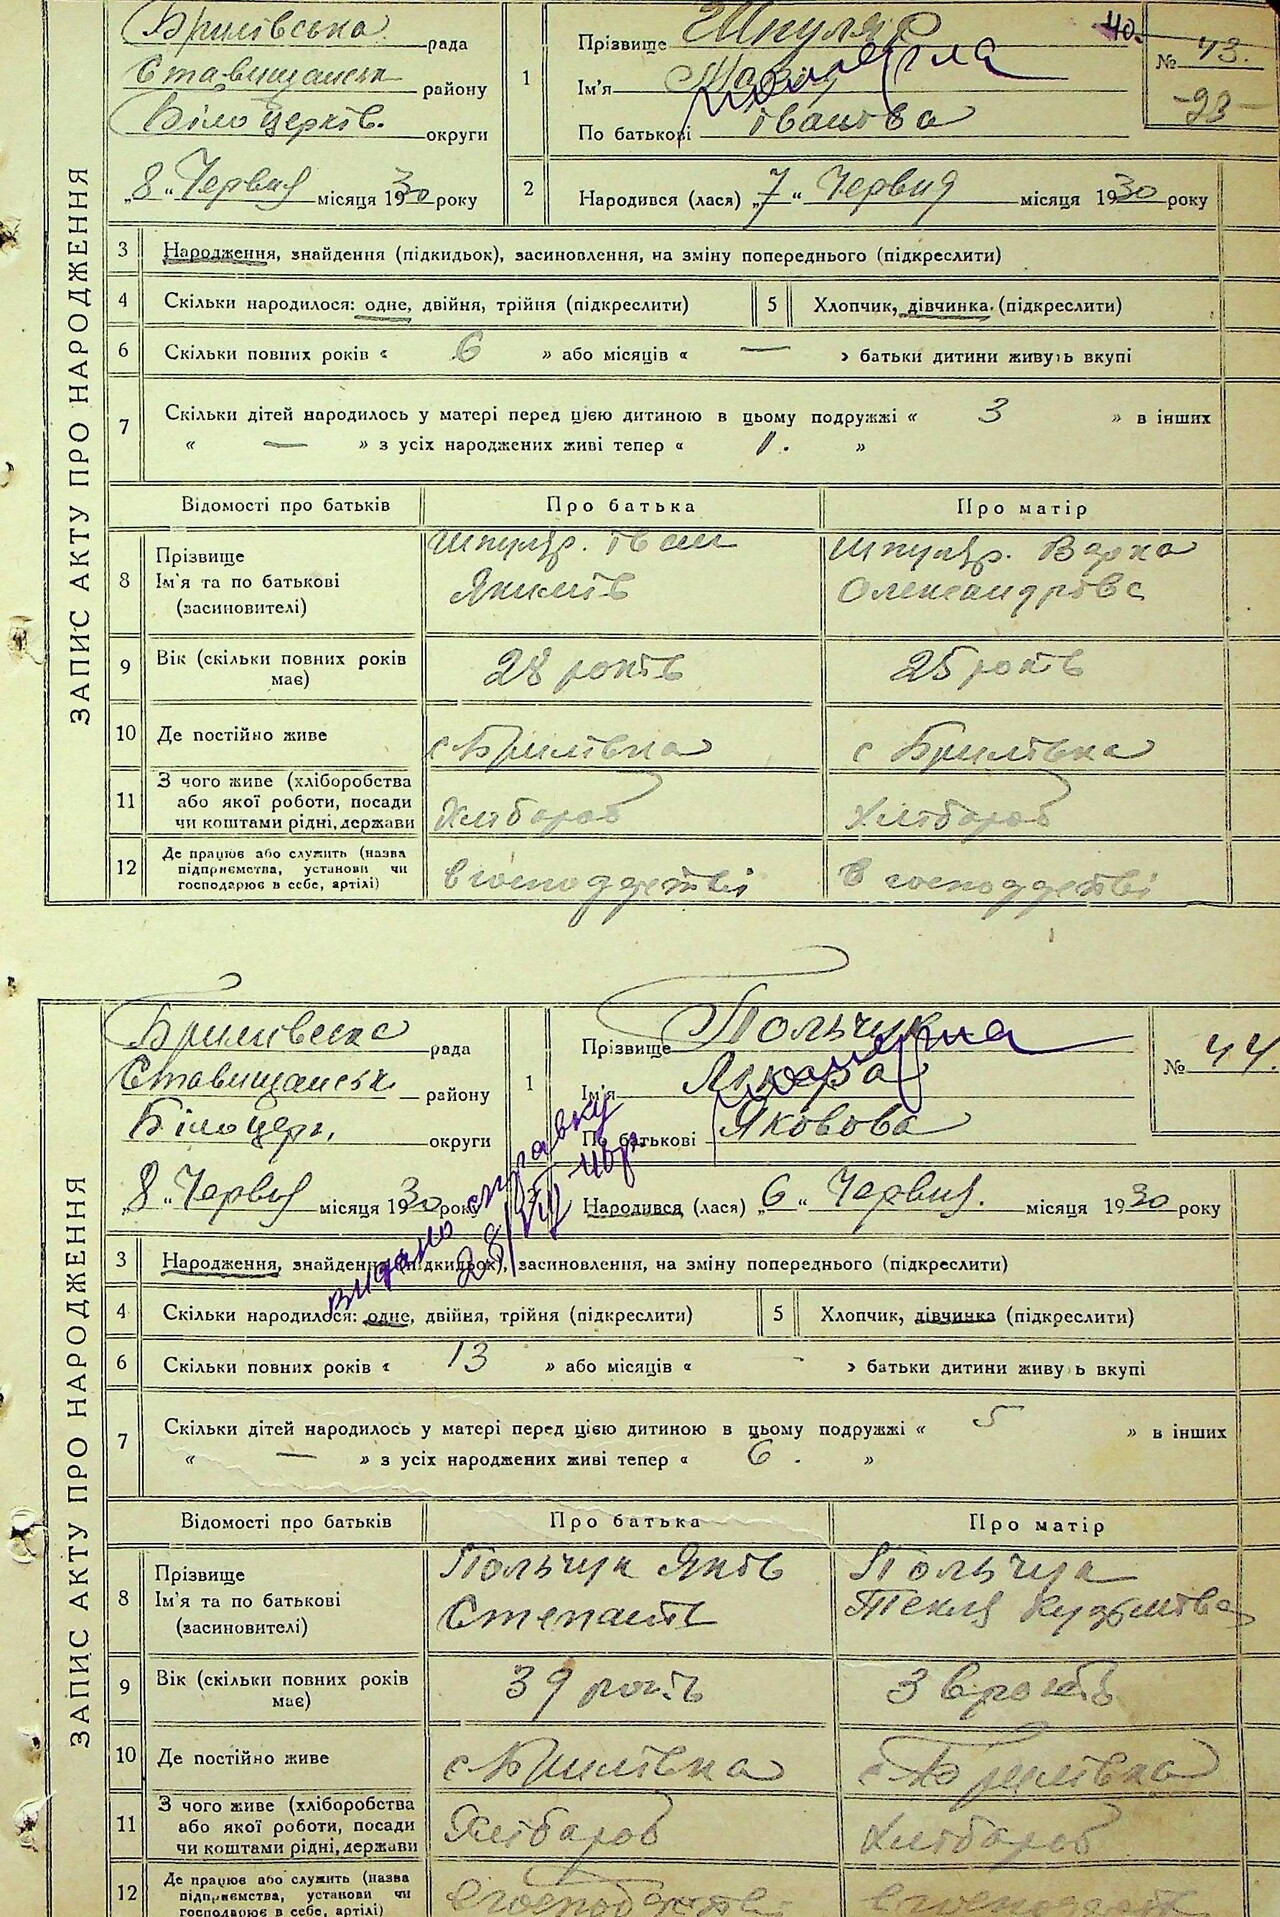 ЗАПИС АКТУ ПРО НАРОДЖЕННЯ
Брилівська рада
Ставищанськ району
Білоцерків. округи
„8“ Червня місяця 1930 року
1
Прізвище Шпуляр
Ім'я
По батькові Іванова
померла
40.
№ 43.
-23-
2
Народився (лася) „7“ Червня місяця 1930 року
3 Народження, знайдення (підкидьок), засиновлення, на зміну попереднього (підкреслити)
4 Скільки народилося: одне, двійня, трійня (підкреслити) 5 Хлопчик, дівчинка. (підкреслити)
6 Скільки повних років « 6 » або місяців « — » батьки дитини живуть вкупі
7 Скільки дітей народилось у матері перед цією дитиною в цьому подружжі « 3 » в інших
« — » з усіх народжених живі тепер « 1. »
Відомості про батьків Про батька Про матір
8 Прізвище Ім'я та по батькові (засиновителі)
Шпуляр. Іван Якимів
Шпуляр. Варка Олександрівс
9 Вік (скільки повних років має) 28 років 25 років
10 Де постійно живе с Брилівка с Брилівка
11 З чого живе (хліборобства або якої роботи, посади чи коштами рідні, держави Хлібароб Хлібароб
12 Де працює або служить (назва підприємства, установи чи господарює в себе, артілі)
ЗАПИС АКТУ ПРО НАРОДЖЕННЯ
Брилівськ рада
Ставищанськ. району
Білоцерк. округи
„8“ Червня місяця 1930 року
1
Прізвище Польчук
Ім'я
По батькові Яковова
померла
№ 44.
видано справку
Народився (лася) „6“ Червня. місяця 1930 року
3 Народження, знайдення (підкидьок), засиновлення, на зміну попереднього (підкреслити)
4 Скільки народилося: одне, двійня, трійня (підкреслити) 5 Хлопчик, дівчинка (підкреслити)
6 Скільки повних років « 13 » або місяців « - » батьки дитини живуть вкупі
7 Скільки дітей народилось у матері перед цією дитиною в цьому подружжі « 5 » в інших
« — » з усіх народжених живі тепер « 6. »
Відомості про батьків Про батька Про матір
8 Прізвище Ім'я та по батькові (засиновителі)
Польчук Яків Степанів
Польчук Текля Кузьмівна
9 Вік (скільки повних років має) 39 років років
10 Де постійно живе с Брилівка с Брилівка
11 З чого живе (хліборобства або якої роботи, посади чи коштами рідні, держави Хлібароб Хлібароб
12 Де працює або служить (назва підприємства, установи чи господарює в себе, артілі)